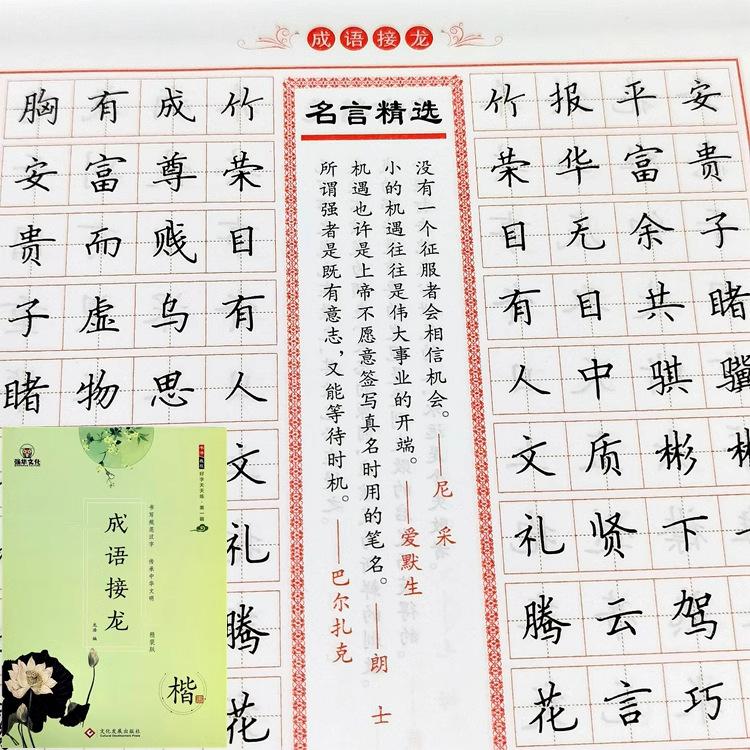 成语接龙
胸有成竹
竹报平安
安富尊荣
荣华富贵
贵而贱目
目无余子
子虚乌有
有目共睹
睹物思人
人中骐骥
文
文质彬彬
礼
礼贤下
腾
腾云驾
花
花言巧
名言精选
没有一个征服者会相信机会。——尼采
小的机遇往往是伟大事业的开端。——爱默生
机遇也许是上帝不愿意签写真名时用的笔名。——朗士
所谓强者是既有意志,又能等待时机。——巴尔扎克
强华文化
好字天天练·第一辑
书写规范汉字 传承中华文明
精装版
成语接龙
编
楷
文化发展出版社
Cultural Development Press